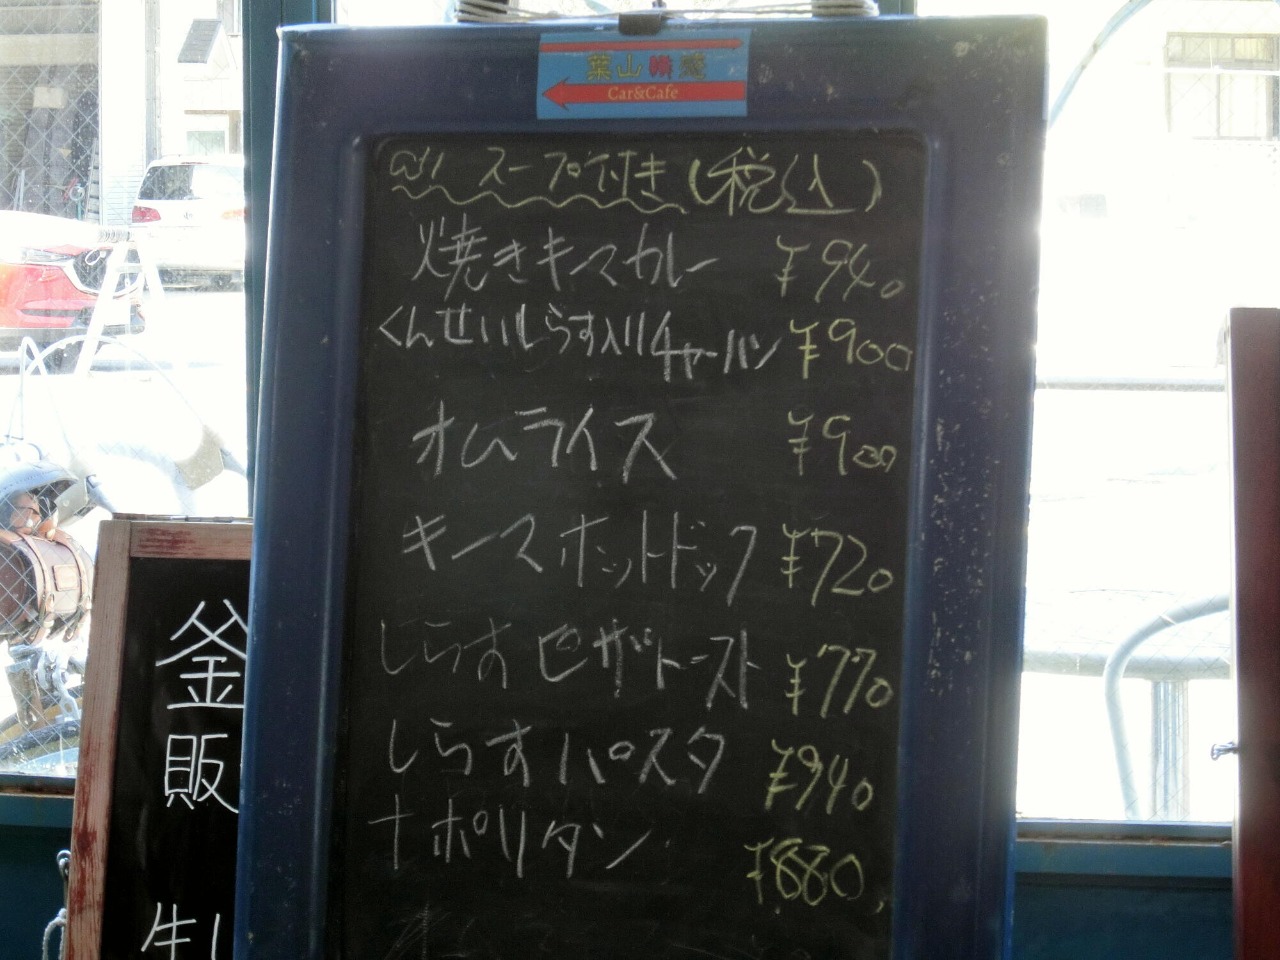 葉山
Car&Cafe
all スープ付き(税込)
焼きキーマカレー ¥940
くんせいしらす入りチャーハン ¥900
オムライス ¥900
キーマホットドック ¥720
しらすピザトースト ¥770
しらすパスタ ¥940
ナポリタン ¥880
釜
販
生し